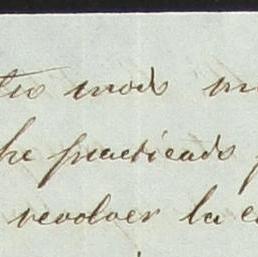 modo
he practicado
revolver la